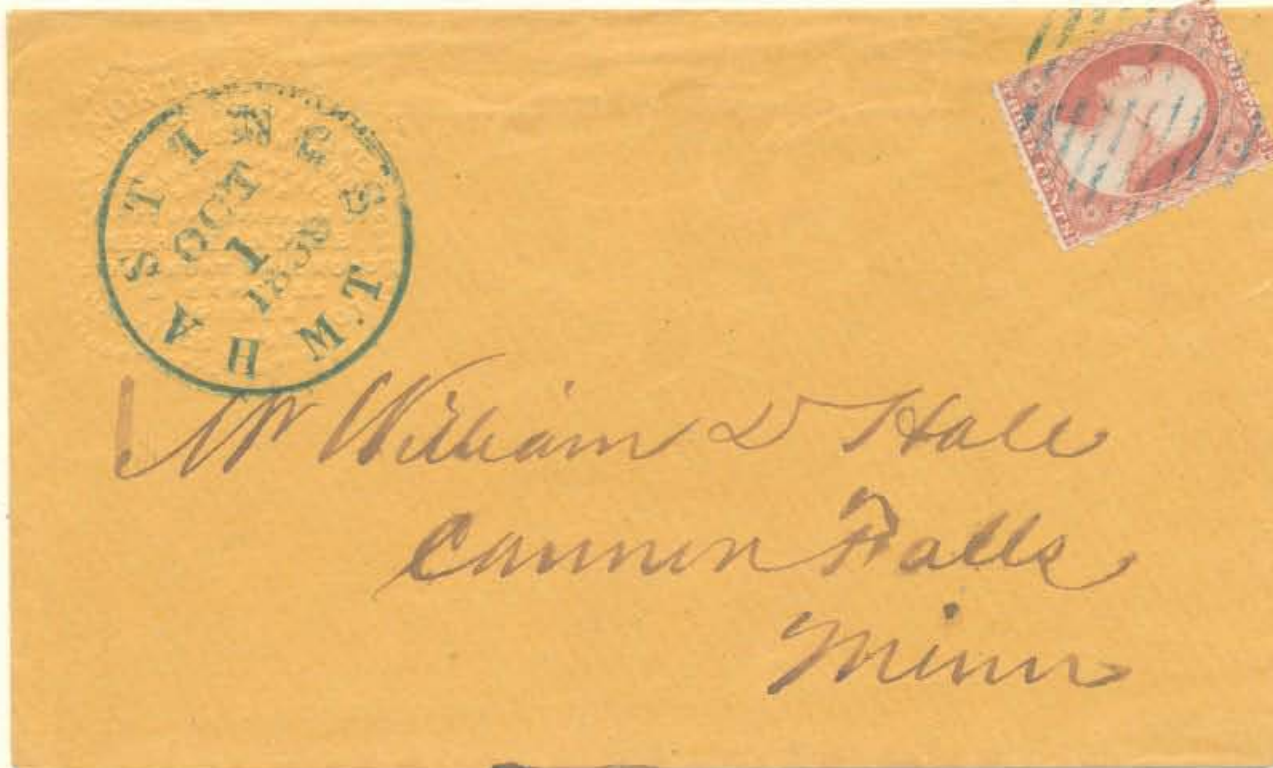 HASTINGS M.T.
OCT
1
1858
U.S. POSTAGE
THREE CENTS.
Mr William D Hall
Cannon Falls
Minn